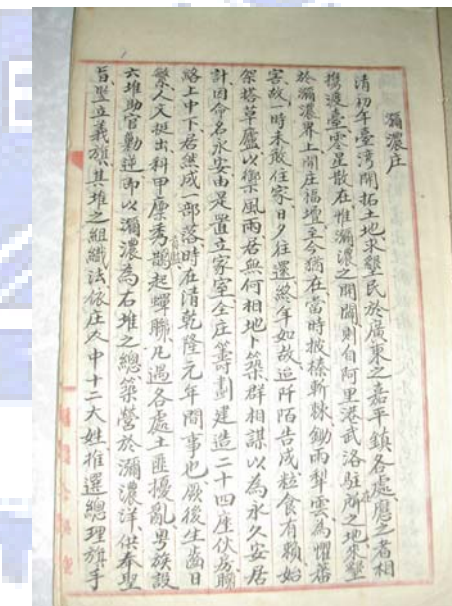 瀰濃庄
清初年臺湾開拓土地求墾民於廣東之嘉平鎮各處應之者相
攜渡臺零星散在惟瀰濃之開闢則自阿里港武洛駐所之地來墾
於瀰濃界上開庄福壇至今猶在當時披榛斬棘鋤雨犁雲為懼蕃
害故一時未敢住家日夕往還終年如故迨阡陌告成粒食有賴始
架搭草廬以禦風雨居無何相地卜築群相謀以為永久安居
計因命名永安由是置立家室全庄籌劃建造二十四座伙房聯
絡上中下居然成一部落時在清乾隆元年間事也厥後生齒日
繁人文挺出科甲廩秀鵲起蟬聯凡遇各處土匪擾亂粵族設
六堆助官勦逆即以瀰濃為右堆之總築營於瀰濃洋供奉聖
旨豎立義旗其堆之組織法依庄久中十二大姓推選總理旗手